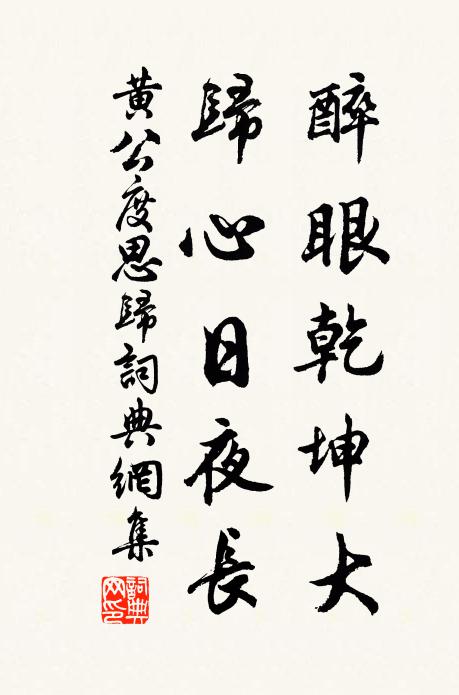 醉眼乾坤大
歸心日夜長
黃公度思歸詞典網集
詞典網印